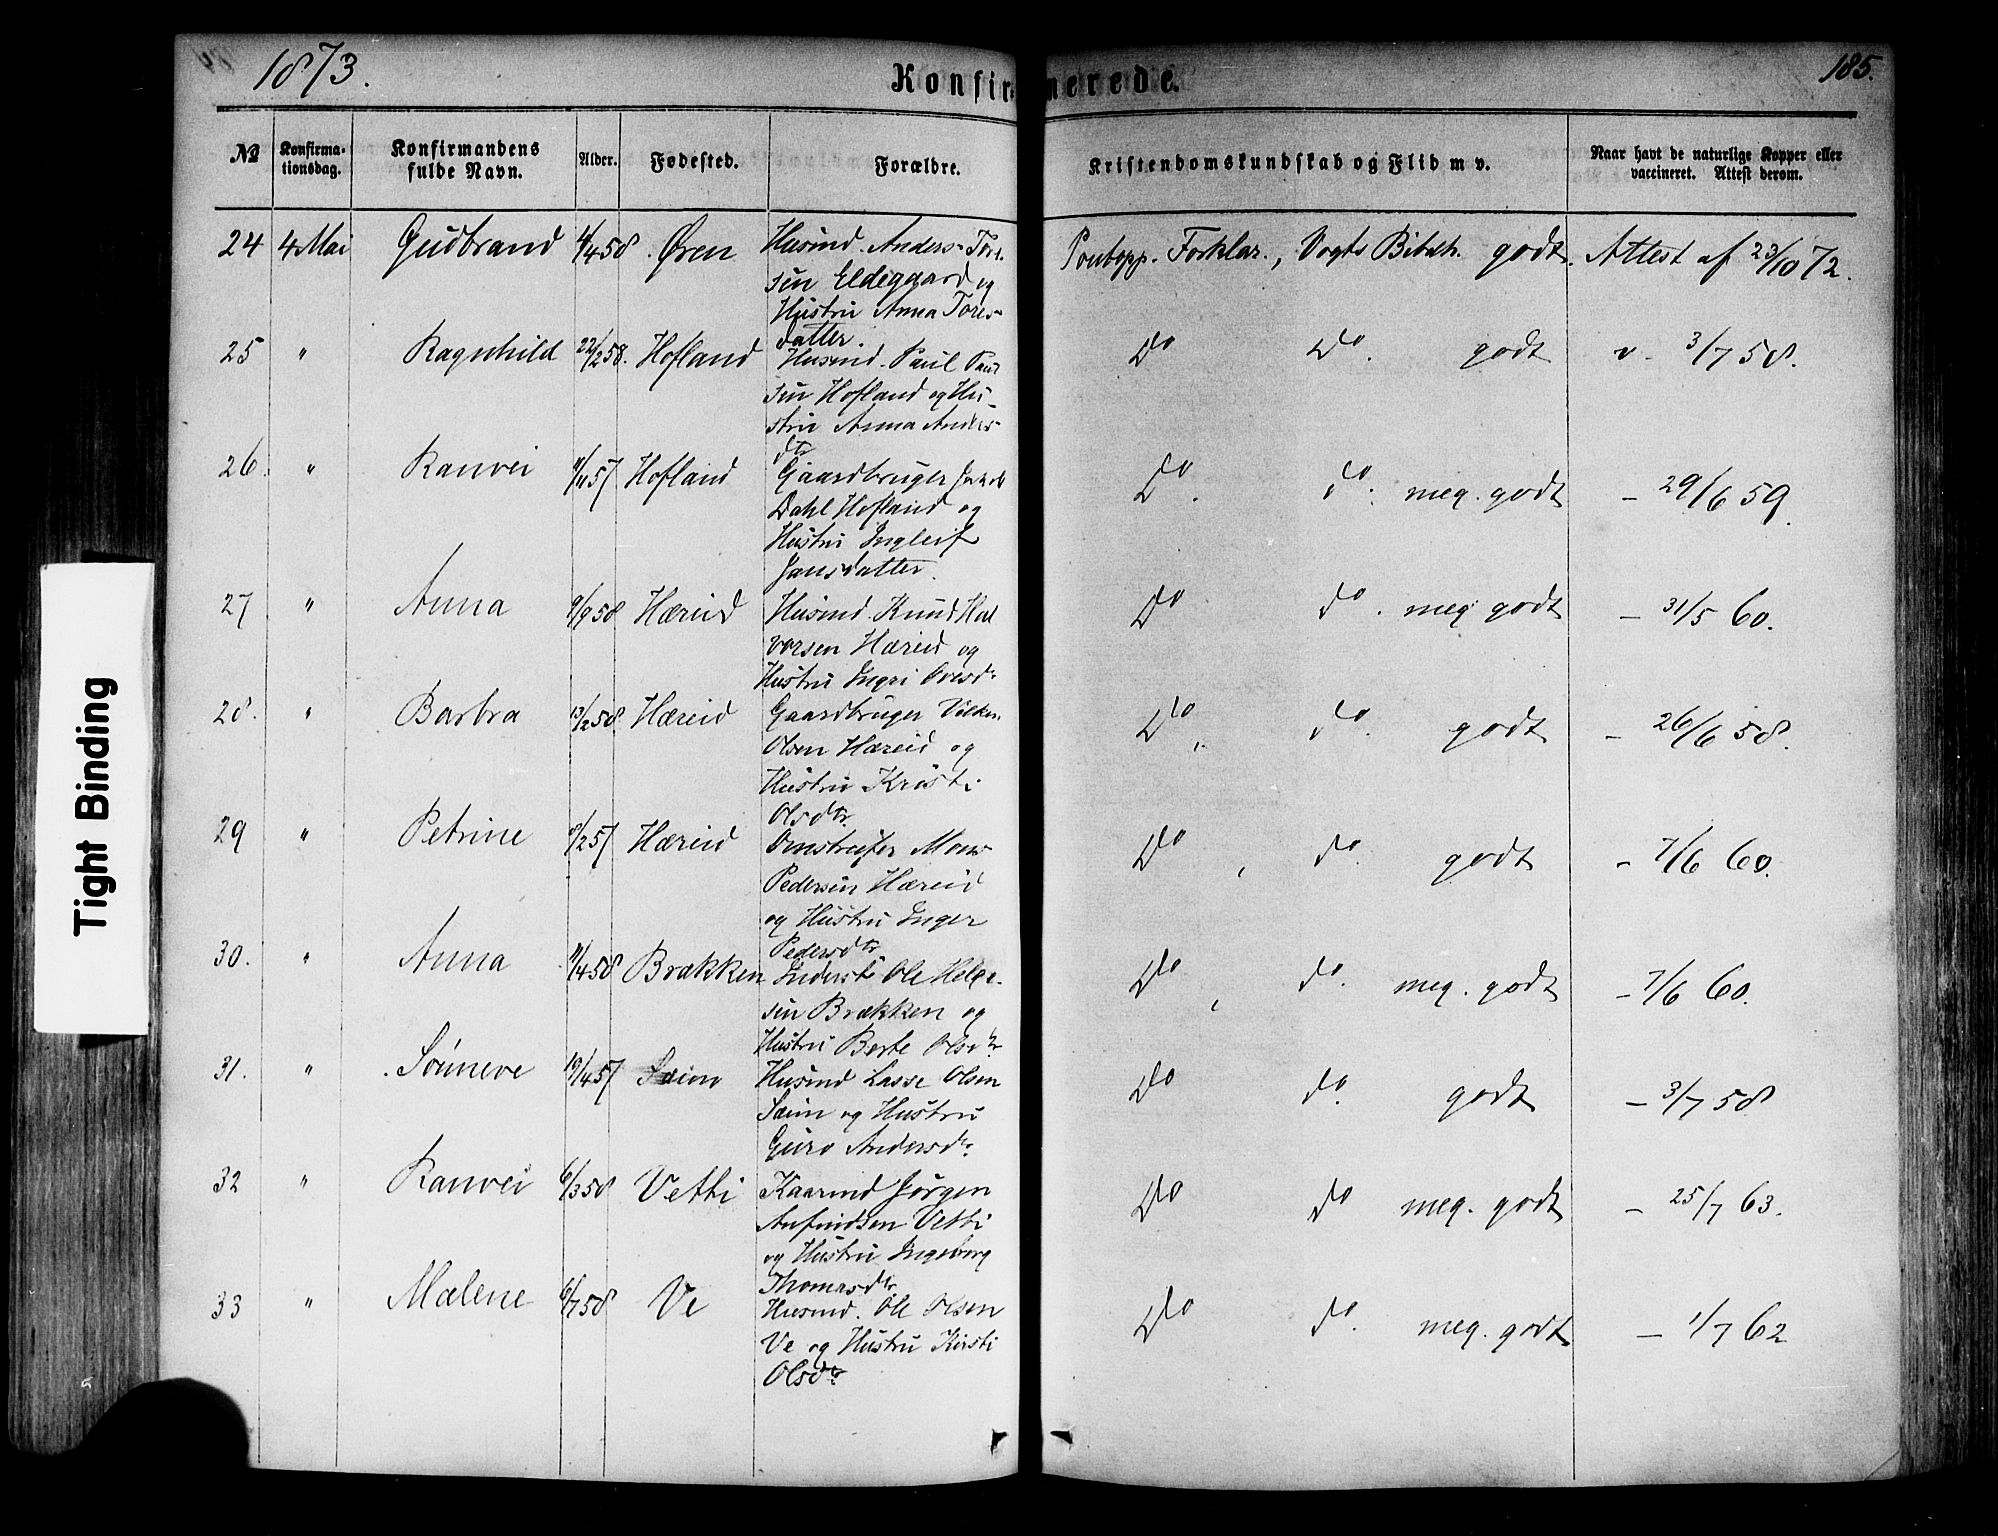 1873.
Konfirmerede.
185.
№
Konfirma-
tionsdag.
Konfirmandens
fulde Navn.
Alder.
Fødested.
Forældre.
Kristendomskundskab og Flid m v.
Naar havt de naturlige Kopper eller
vaccineret. Attest derom.
24 4 Mai Gudbrand 4/4 58 Øren Husmd. Anders Tore- Pontopp. Forklar., Vogts Bibelh. godt. Attest af 23/10 72.
sen Eldegaard og
Hustru Anna Tores-
datter.
25 " Ragnhild 22/2 58. Hofland Husmd. Paul Paul Do Do. godt v. 3/7 58.
sen Hofland og Hu-
stru Anna Anders-
dtr
26. " Ranvei 11/11 57 Hofland Gaardbruger Do. do. meg. godt - 29/6 59.
Dahl Hofland og
Hustru Ingleif
Jansdatter.
27 " Anna 9/9 58 Hæreid Husmd. Knud Hal Do do. meg godt - 31/5 60.
vorsen Hæreid og
Hustru Ingri
28. " Barbra 13/2 58. Hæreid Gaardbruger Do. do. godt - 26/6 58.
Olsen Hæreid og
Hustru Kristi
Olsdtr.
29 " Petrine 8/2 57 Hæreid Omstreifer Mons Do, do. godt - 7/6 60.
Pedersen Hæreid
og Hustru Inger
Pedersdtr
30. " Anna 11/4 58 Brækken Inderst Ole Helge- Do, do. meg. godt - 7/6 60.
sen Brækken og
Hustru Berte Olsdtr
31. " Sønneve 19/4 57 Sæim Husmd Lasse Olsen Do do. godt - 3/7 58
Sæim og Hustru
Guro Andersdtr.
32 " Ranvei 6/3 58 Vetti Kaarmd Jørgen Do do meg. godt - 25/7 63.
Anfindsen Vetti
og Hustru Ingeborg
Thomasdtr
33 " Malene 6/7 58 Ve Husmd. Ole Olsen Do do. meg. godt - 1/7 62
Ve og Hustru Kirsti
Olsdtr
Tight Binding